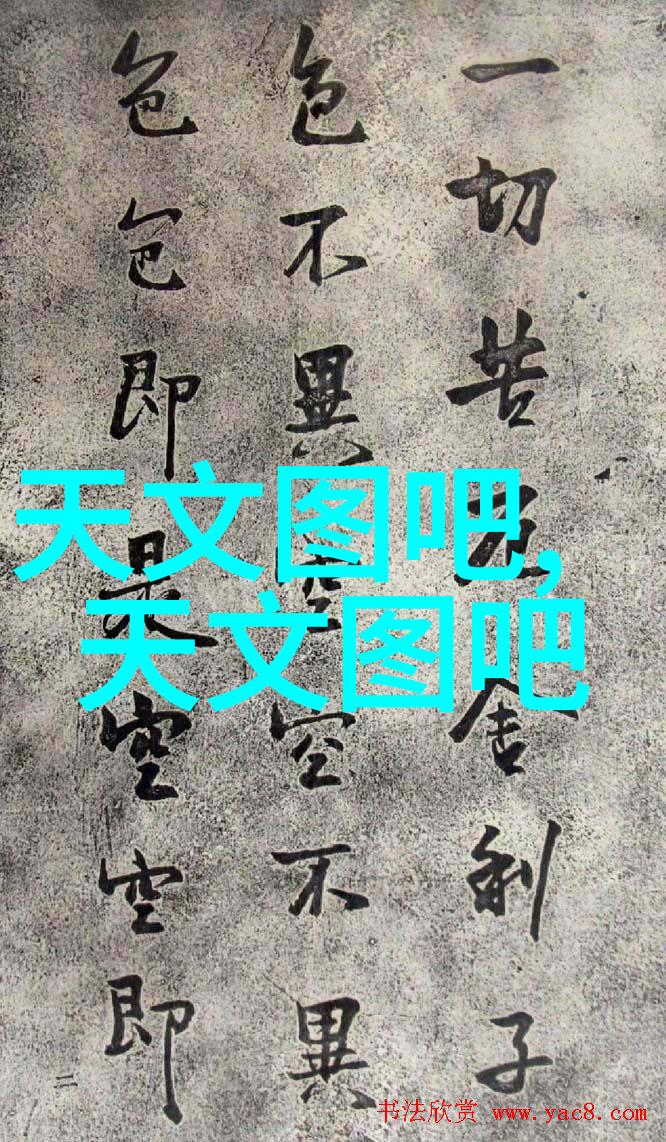 一切苦厄舍利子
色不異空空不異
色色即是空空即
二
天文图吧,
天文图吧
书法欣赏 www.yac8.com